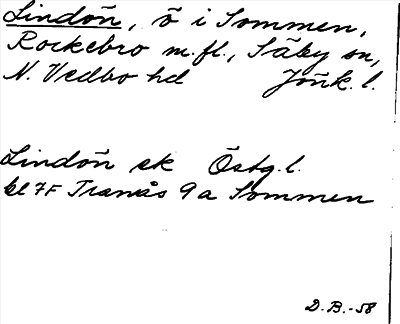 Lindön, ö i Sommen,
Rockebro m.fl., Säby sn,
N. Vedbo hd Jönk. l.
Lindön ek Östg. l.
bl 7F Tranås 9 a Sommen
D. B. - 58